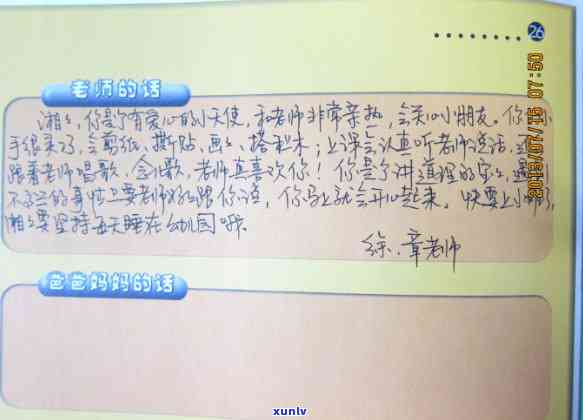 26
老师的话
湘湘,你是个有爱心的小天使,和老师非常亲热,会关心小朋友。你的小
手很灵巧,会剪纸、撕贴、画画、搭积木;上课会认真听老师说话,
跟着老师唱歌,会儿歌,老师真喜欢你!你是个讲道理的宝宝,遇到
不高兴的事情只要老师好好跟你说,你马上就会开心起来。快要上小班了,
湘湘要坚持每天睡在幼儿园哦。
徐、章老师
爸爸妈妈的话
2013/07/15 07:50
xunlv